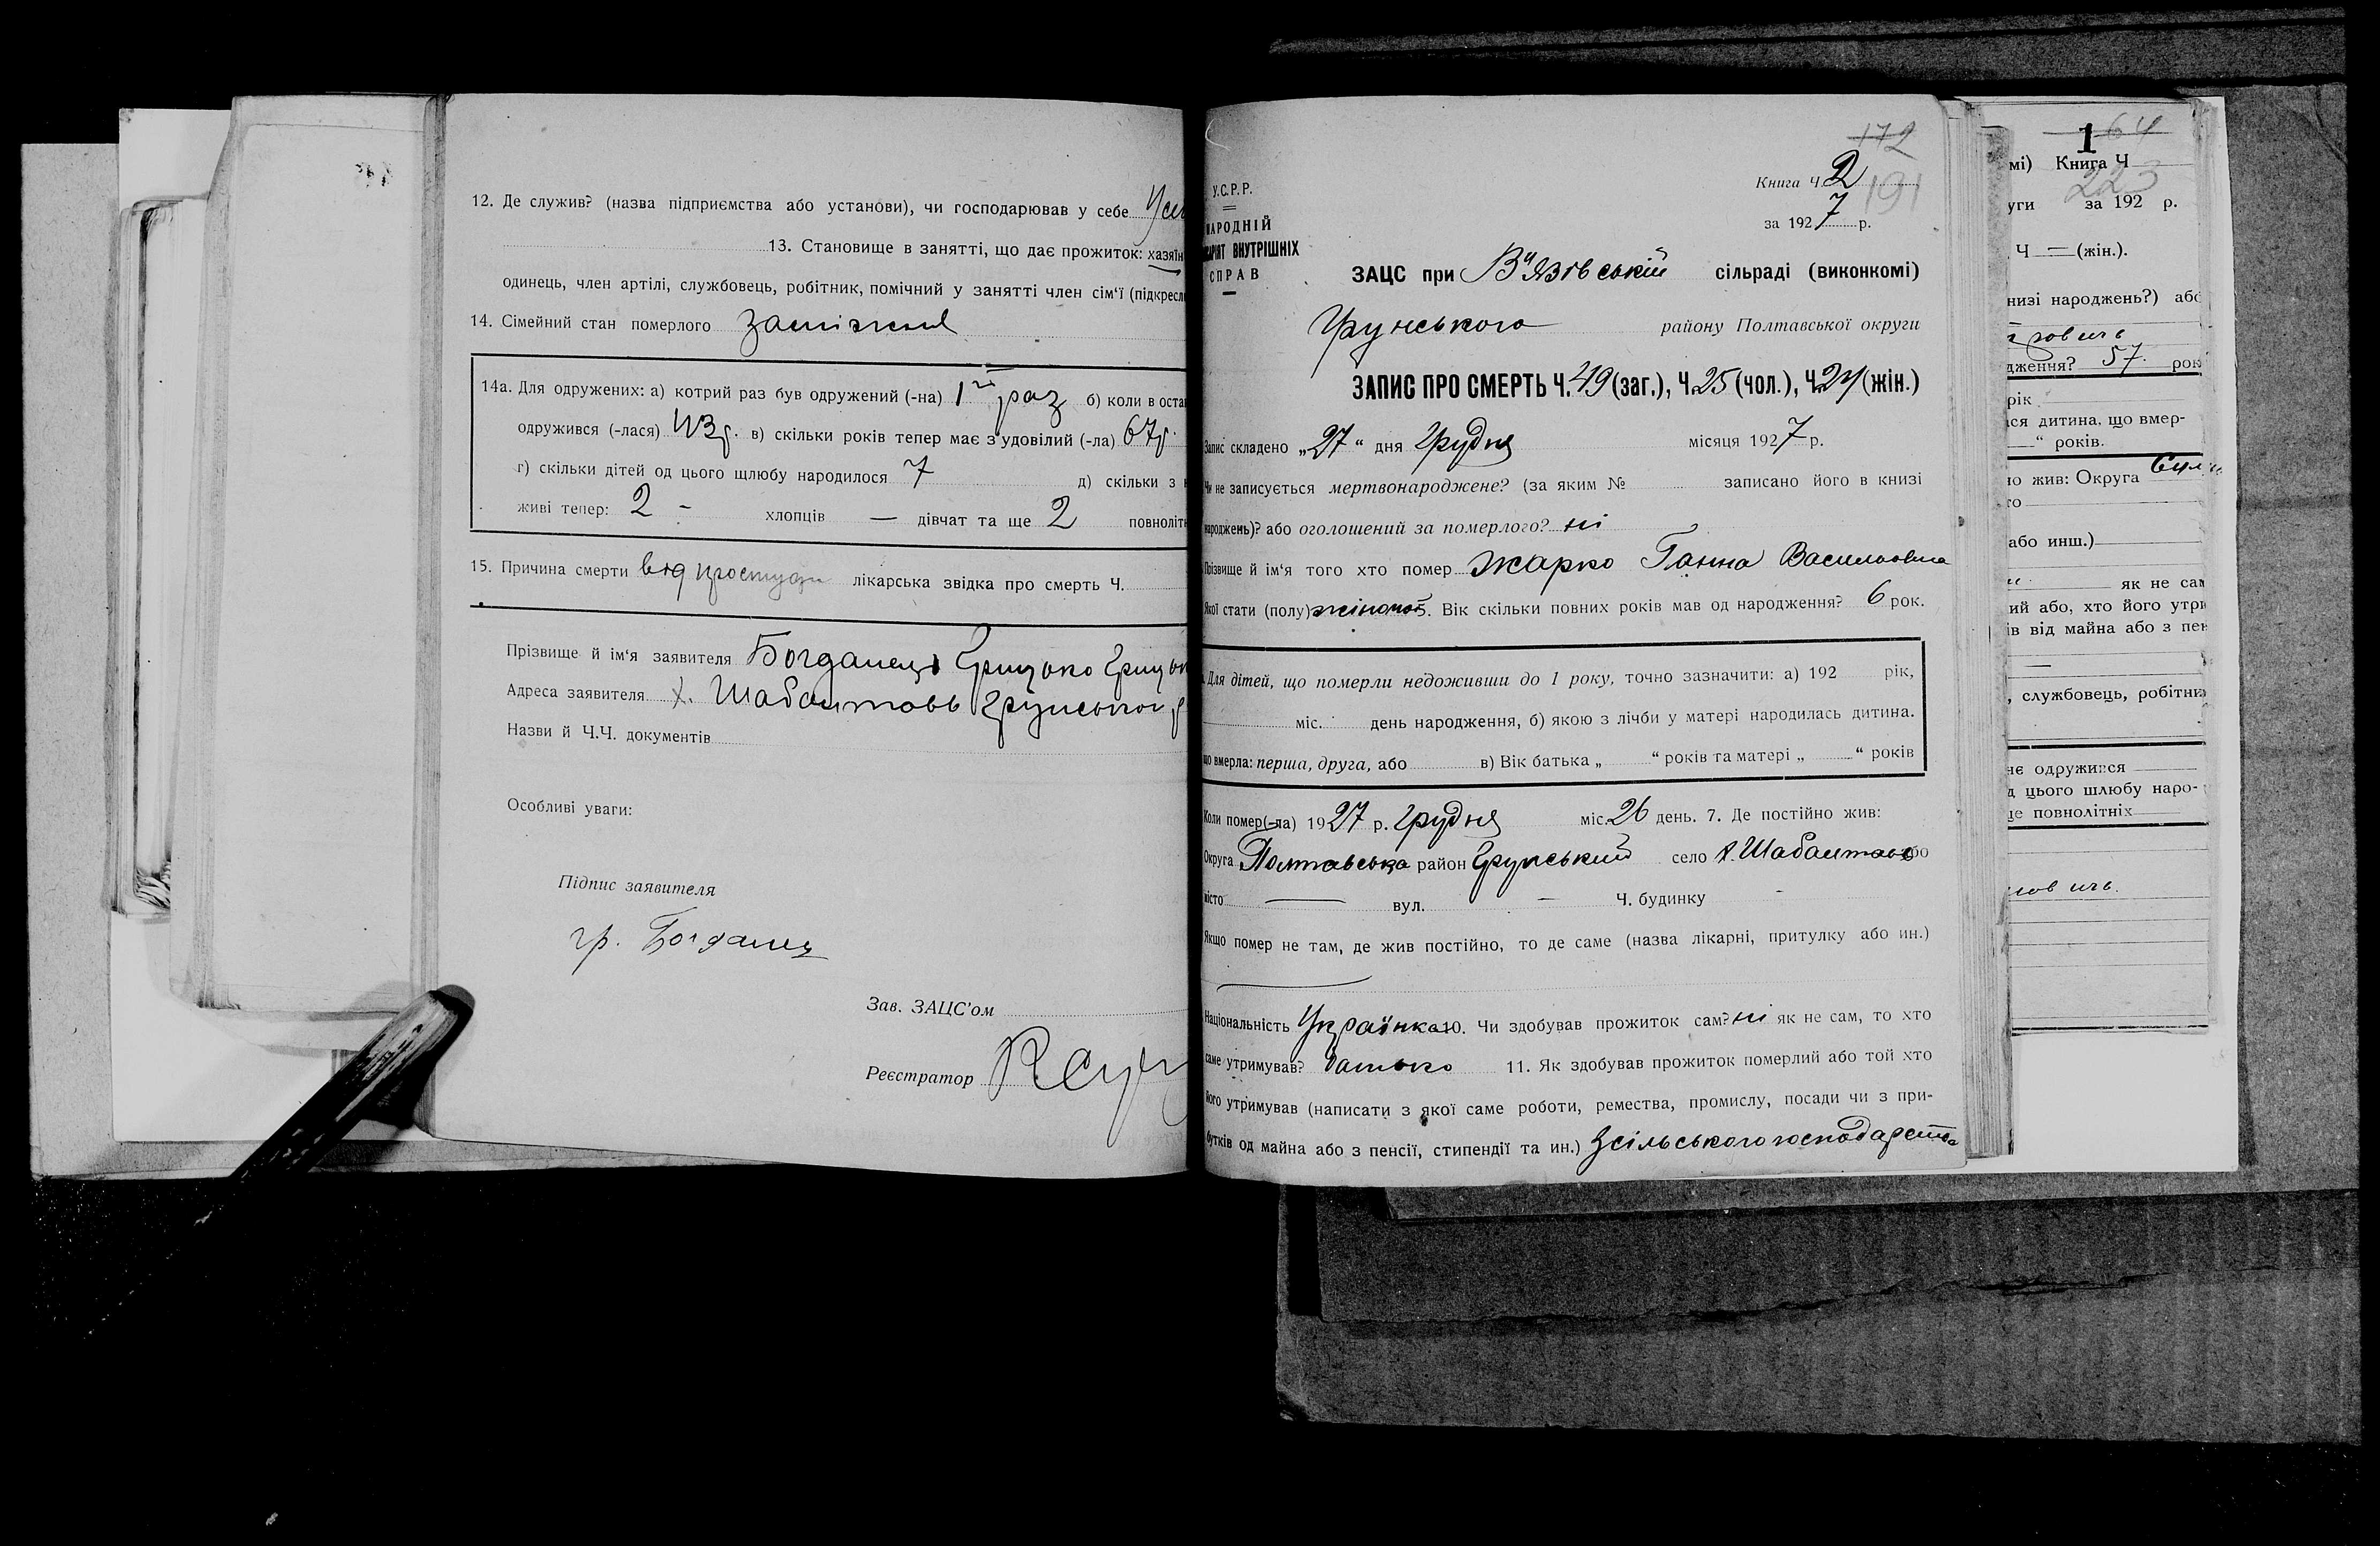 12. Де служив? (назва підприємства або установи), чи господарював у себе
13. Становище в занятті, що дає прожиток: хазяїн
одинець, член артілі, службовець, робітник, помічний у занятті член сім'ї (підкресл
14. Сімейний стан померлого
14а. Для одружених: а) котрий раз був одружений (-на) 1 раз б) коли в оста
одружився (-лася) в) скільки років тепер має з'удовілий (-ла) 67 р.
г) скільки дітей од цього шлюбу народилося 7 д) скільки з
живі тепер: 2 - хлопців — дівчат та ще 2 повноліт
15. Причина смерти від простуди лікарська звідка про смерть Ч.
Прізвище й ім'я заявителя Богданець Грицько
Адреса заявителя х. Шабалтовь Грунського
Назви й Ч.Ч. документів
Особливі уваги:
Підпис заявителя
гр. Богданец
Зав. ЗАЦС'ом
Реєстратор
172
Книга Ч. 2
191
за 1927 р.
У.С.Р.Р.
НАРОДНІЙ
ВНУТРІШНІХ
СПРАВ
ЗАЦС при В'язівській сільраді (виконкомі)
Грунського району Полтавської округи
ЗАПИС ПРО СМЕРТЬ Ч. 49 (заг.), Ч. 25 (чол.), Ч. 24 (жін.)
Запис складено „27“ дня грудня місяця 1927 р.
Чи не записується мертвонароджене? (за яким № записано його в книзі
народжень)? або оголошений за померлого? ні
Прізвище й ім'я того хто помер Жарко Ганна Василовна
Якої стати (полу) жіночої 5. Вік скільки повних років мав од народження? 6 рок.
Для дітей, що померли недоживши до 1 року, точно зазначити: а) 192 рік,
міс. день народження, б) якою з лічби у матері народилась дитина.
що вмерла: перша, друга, або в) Вік батька „ “ років та матері „ “ років
Коли помер(-ла) 1927 р. грудня міс. 26 день. 7. Де постійно жив:
Округа Полтавська район Грунський село х. Шабалтово або
місто — вул. — Ч. будинку -
Якщо помер не там, де жив постійно, то де саме (назва лікарні, притулку або ин.)
Національність Українка 10. Чи здобував прожиток сам? ні як не сам, то хто
саме утримував? батько 11. Як здобував прожиток померлий або той хто
його утримував (написати з якої саме роботи, ремества, промислу, посади чи з при-
бутків од майна або з пенсії, стипендії та ин.) Зсільського господарства
1 64
мі) Книга Ч
223
уги за 192 р.
Ч — (жін.).
низі народжень?) або
дження? 57 рок
рік
ся дитина, що вмер-
—“ років.
о жив: Округа
го
або инш.)
як не сам
ий або, хто його утри
ів від майна або з пен
—
, службовець, робітни
не одружився
д цього шлюбу наро-
ще повнолітніх